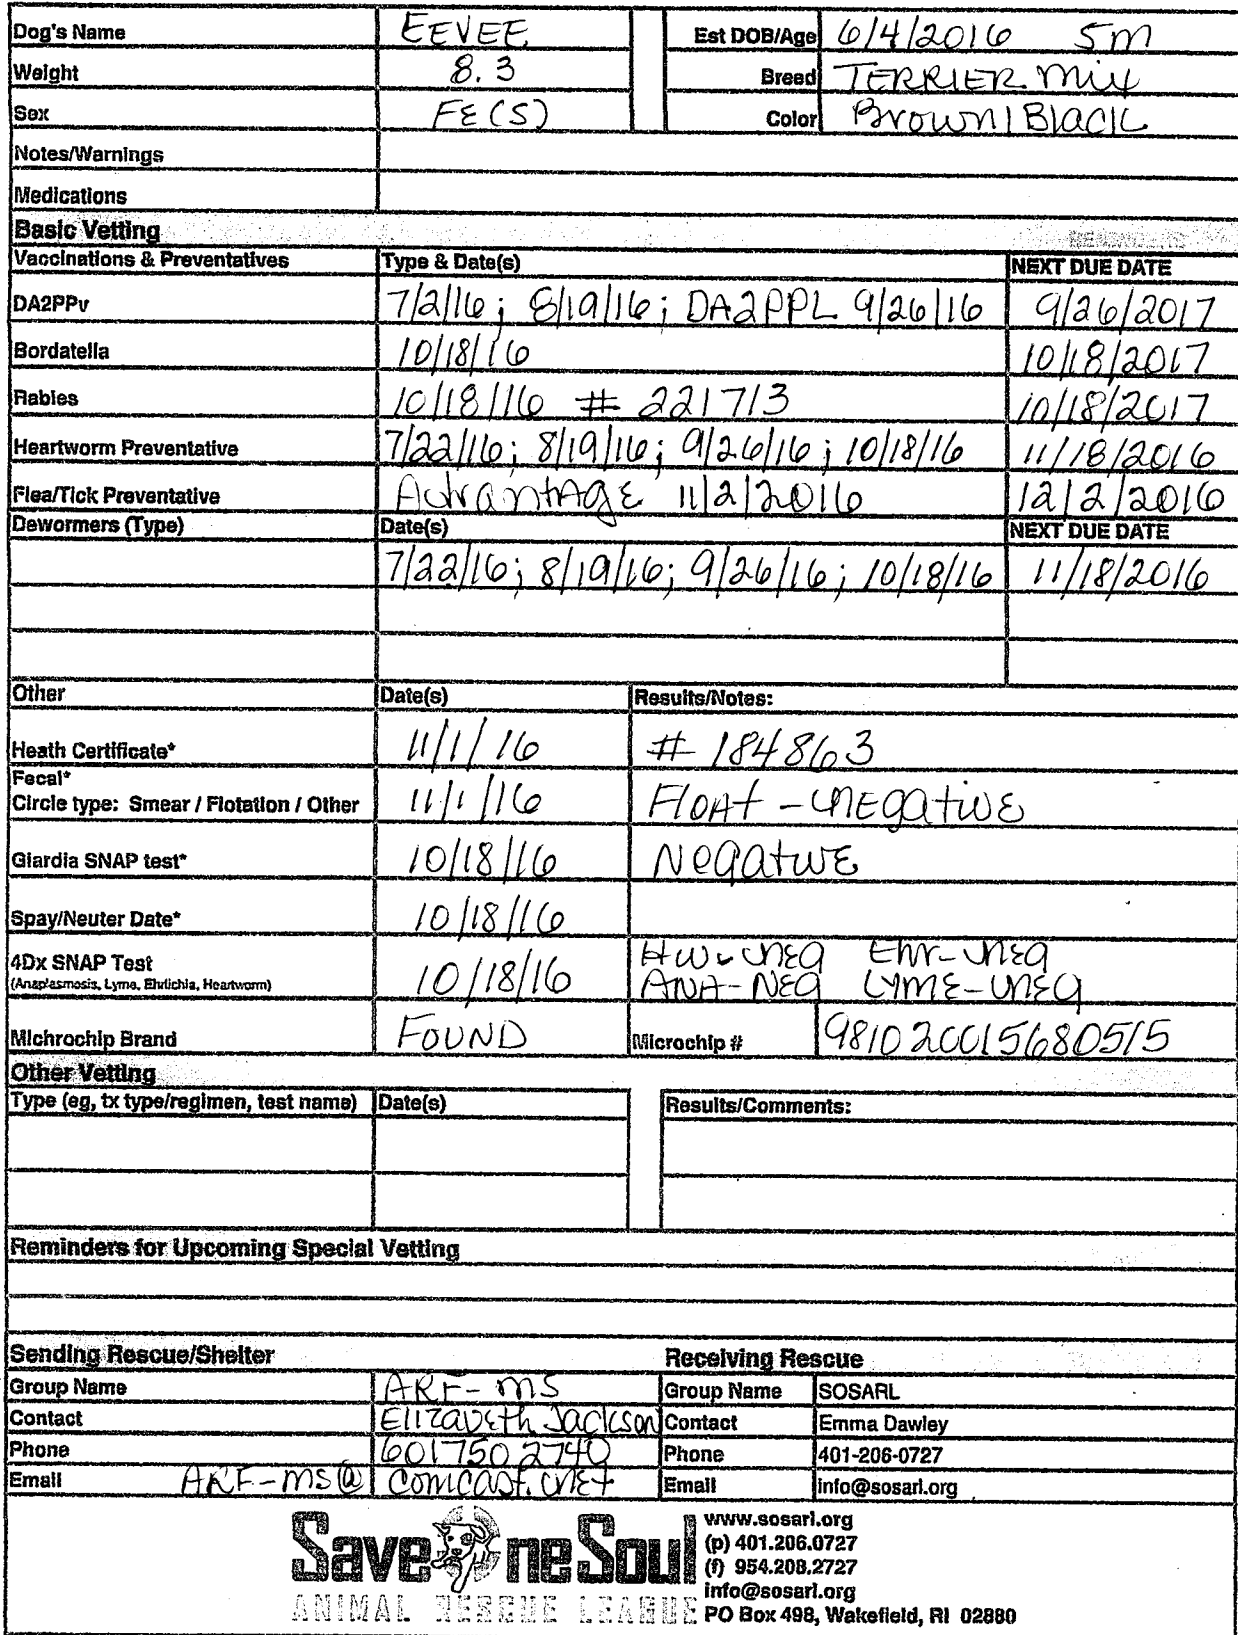 Dog's Name EEVEE Est DOB/Age 6/4/2016 5m
Weight 8.3 Breed TERRIER mix
Sex FE (S) Color Brown/Black
Notes/Warnings
Medications
Basic Vetting
Vaccinations & Preventatives Type & Date(s) NEXT DUE DATE
DA2PPv 7/2/16; 8/19/16; DA2PPL 9/26/16 9/26/2017
Bordatella 10/18/16 10/18/2017
Rabies 10/18/16 # 221713 10/18/2017
Heartworm Preventative 7/22/16; 8/19/16; 9/26/16; 10/18/16 11/18/2016
Flea/Tick Preventative AdvantAgE 11/2/2016 12/2/2016
Dewormers (Type) Date(s) NEXT DUE DATE
7/22/16; 8/19/16; 9/26/16; 10/18/16 11/18/2016
Other Date(s) Results/Notes:
Heath Certificate* 11/1/16 # 184863
Fecal*
Circle type: Smear / Flotation / Other 11/1/16 FloAt - nEgative
Giardia SNAP test* 10/18/16 Negative
Spay/Neuter Date* 10/18/16
4Dx SNAP Test 10/18/16 HW- nEg Ehr- nEg
(Anaplasmosis, Lyme, Ehrlichia, Heartworm) ANA-NEg LYME-nEg
Michrochip Brand FOUND Microchip # 981020015680515
Other Vetting
Type (eg, tx type/regimen, test name) Date(s) Results/Comments:
Reminders for Upcoming Special Vetting
Sending Rescue/Shelter Receiving Rescue
Group Name ARF-MS Group Name SOSARL
Contact Elizabeth Jackson Contact Emma Dawley
Phone 601 750 2740 Phone 401-206-0727
Email ARF-MS@comcast.net Email info@sosarl.org
Save One Soul
ANIMAL RESCUE LEAGUE
www.sosarl.org
(p) 401.206.0727
(f) 954.208.2727
info@sosarl.org
PO Box 498, Wakefield, RI 02880